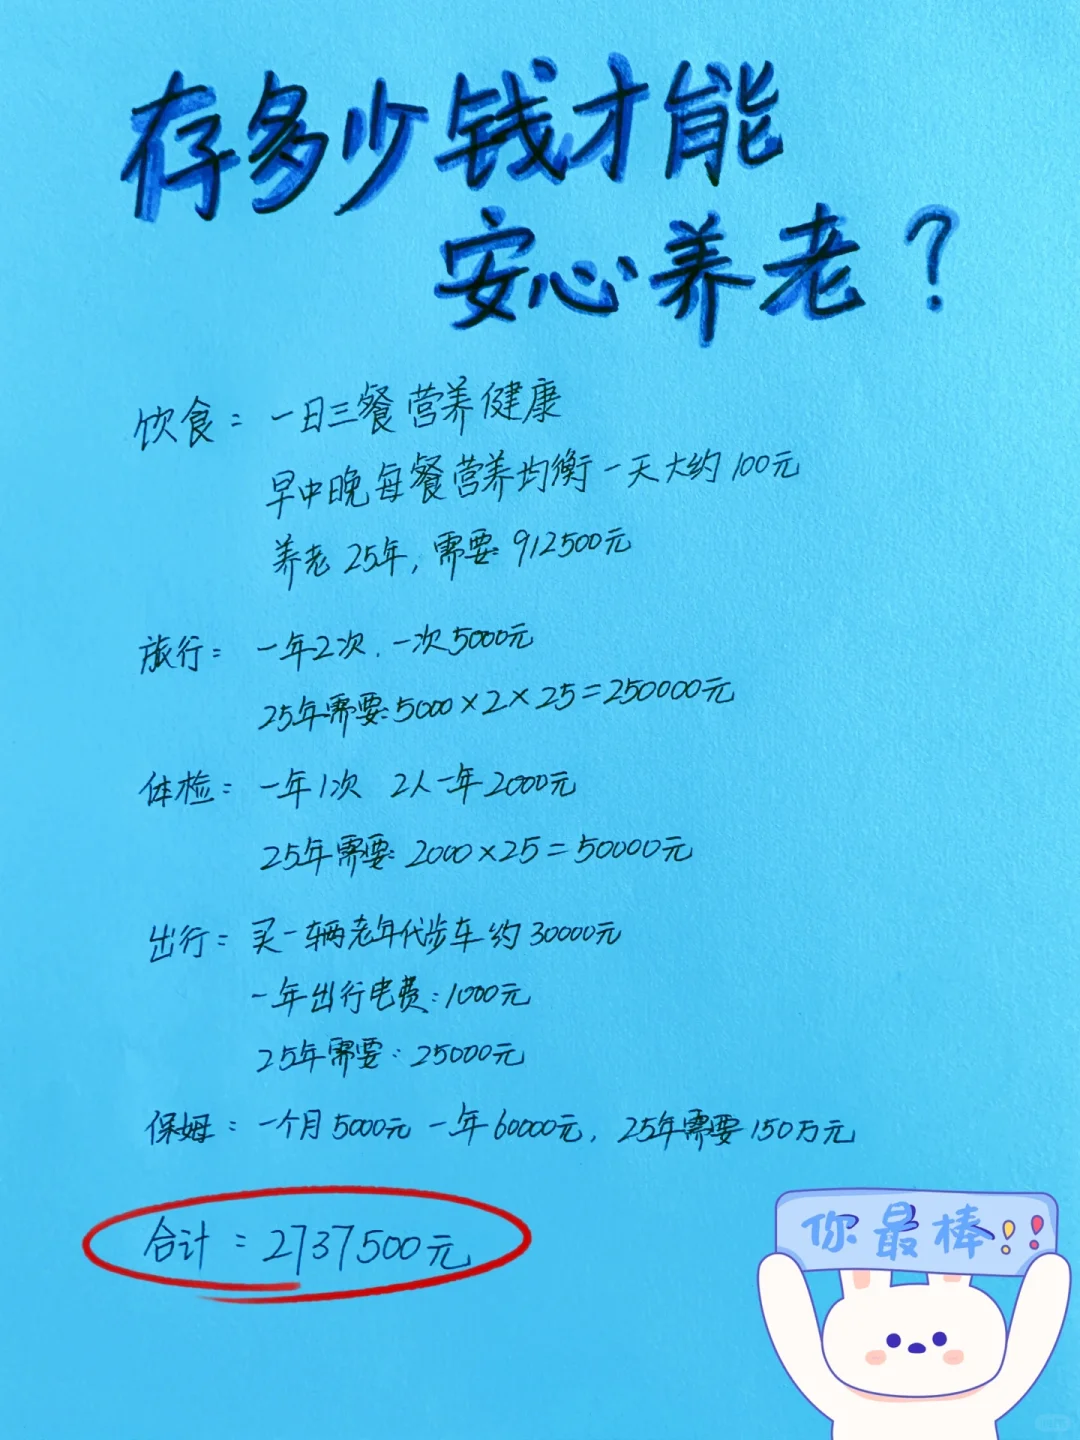 存多少钱才能
安心养老？
饮食：一日三餐营养健康
早中晚每餐营养均衡一天大约100元
养老25年，需要：912500元
旅行：一年2次．一次5000元
25年需要：5000×2×25=250000元
体检：一年1次 2人一年2000元
25年需要：2000×25=50000元
出行：买一辆老年代步车约30000元
一年出行电费：1000元
25年需要：25000元
保姆：一个月5000元 一年60000元，25年需要150万元
合计：2737500元
你最棒!!